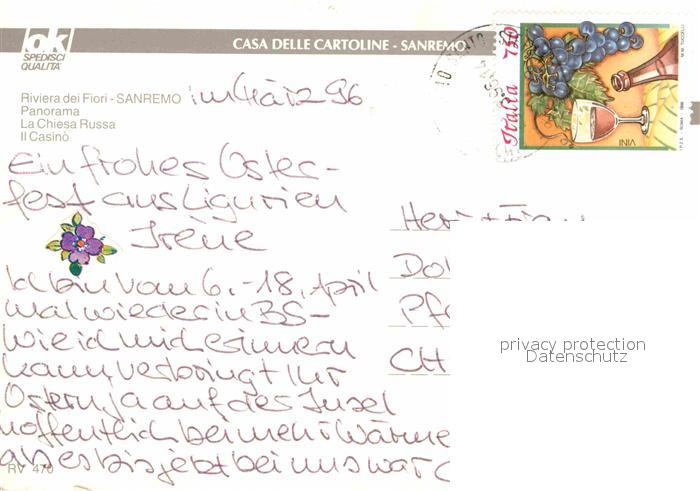 ok
SPEDISCI
QUALITÀ
CASA DELLE CARTOLINE - SANREMO
Italia 750
VINI
I.P.Z.S. ROMA
Riviera dei Fiori - SANREMO
Panorama
La Chiesa Russa
Il Casinò
im März 96
Ein frohes Oster-
fest aus Ligurien
Irène
Ich bin vom 6. - 18. April
mal wieder in BS -
wie ich mich erinnern
kann, verbringt Ihr
Ostern ja auf der Insel
hoffentlich bei mehr Wärme
als es bis jetzt bei uns war
RV 470
Herr
CH
privacy protection
Datenschutz